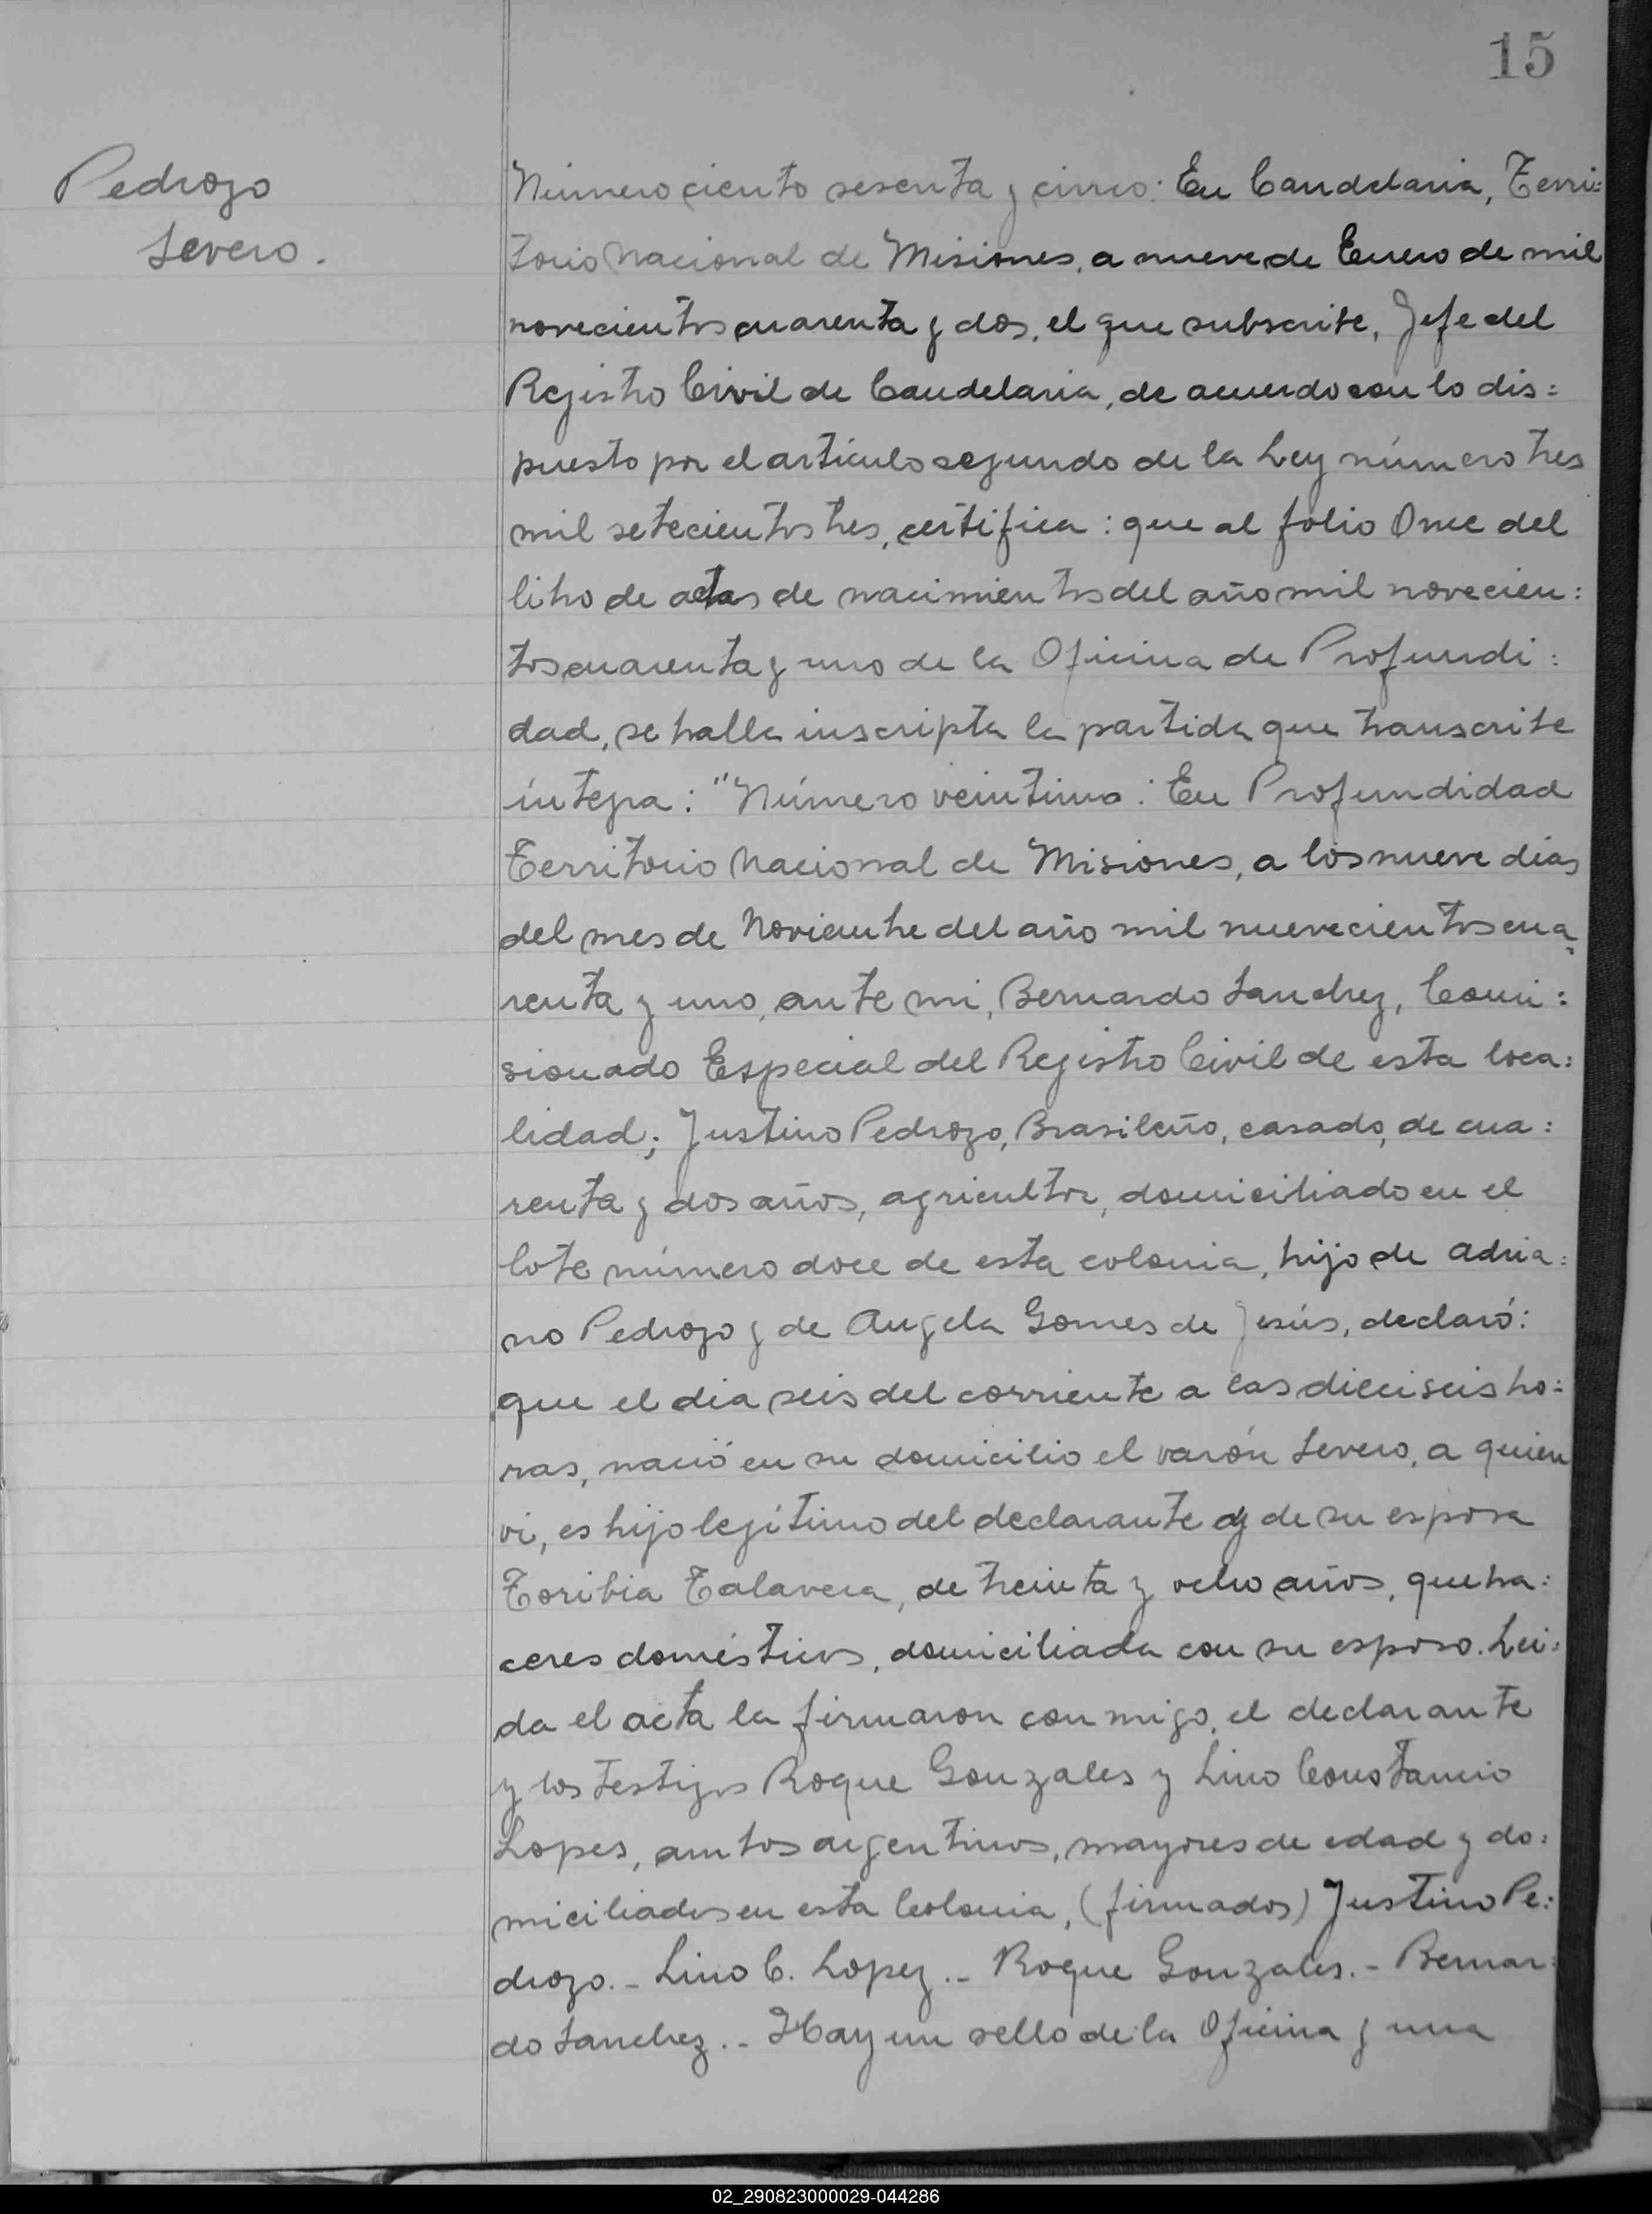 15
Pedrozo
Severo.
Número ciento sesenta y cinco: En Candelaria, Terri=
torio Nacional de Misiones, a nueve de Enero de mil
novecientos cuarenta y dos, el que subscribe, Jefe del
Registro Civil de Candelaria, de acuerdo con lo dis=
puesto por el artículo segundo de la Ley número tres
mil setecientos tres, certifica: que al folio Once del
libro de actas de nacimientos del año mil novecien=
tos cuarenta y uno de la Oficina de Profundi=
dad, se halla inscripta la partida que transcribe
íntegra: "Número veintiuno: En Profundidad
Territorio Nacional de Misiones, a los nueve dias
del mes de Noviembre del año mil nuevecientos cua=
renta y uno, ante mi, Bernardo Sanchez, Comi=
sionado Especial del Registro Civil de esta loca=
lidad; Justino Pedrozo, Brasileño, casado, de cua=
renta y dos años, agricultor, domiciliado en el
lote número doce de esta colonia, hijo de Adria=
no Pedrozo y de Angela Gomes de Jesús, declaró:
que el dia seis del corriente a las dieciseis ho=
ras, nació en su domicilio el varón Severo, a quien
vi, es hijo legítimo del declarante y de su esposa
Toribia Talavera, de treinta y ocho años, queha=
ceres domésticos, domiciliada con su esposo. Lei=
da el acta la firmaron conmigo, el declarante
y los testigos Roque Gonzales y Lino Constancio
Lopes, ambos argentinos, mayores de edad y do=
miciliados en esta Colonia, (firmados) Justino Pe=
drozo.- Lino C. Lopez.- Roque Gonzales.- Bernar=
do Sanchez.- Hay un sello de la Oficina y una
02_290823000029-044286